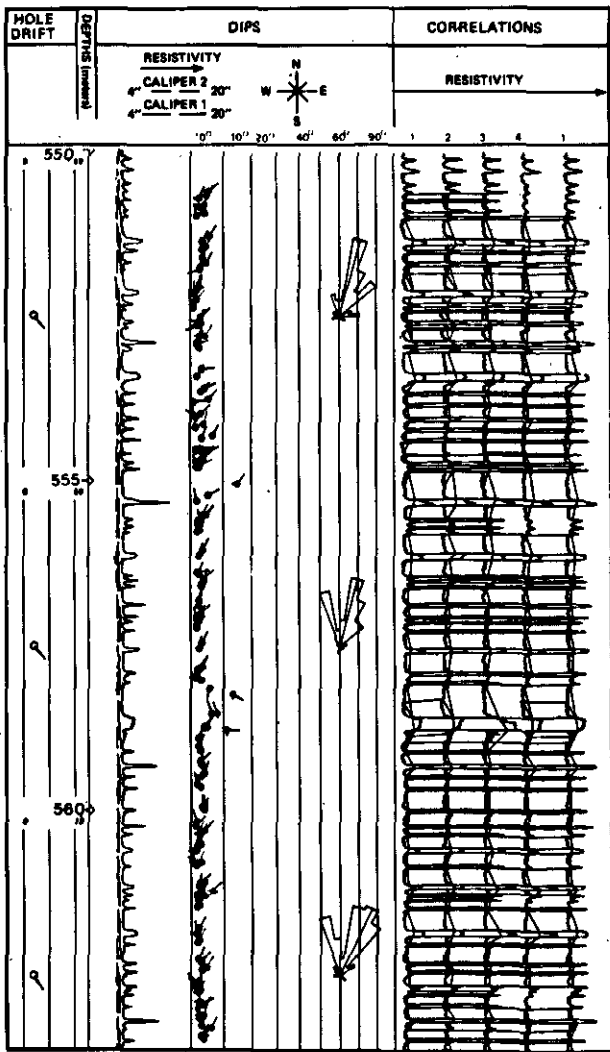 HOLE
DRIFT
DEPTHS (meters)
DIPS
CORRELATIONS
RESISTIVITY
CALIPER 2
4" 20"
CALIPER 1
4" 20"
N
W E
S
RESISTIVITY
0° 10° 20° 40° 60° 90°
1 2 3 4 1
550
555
560